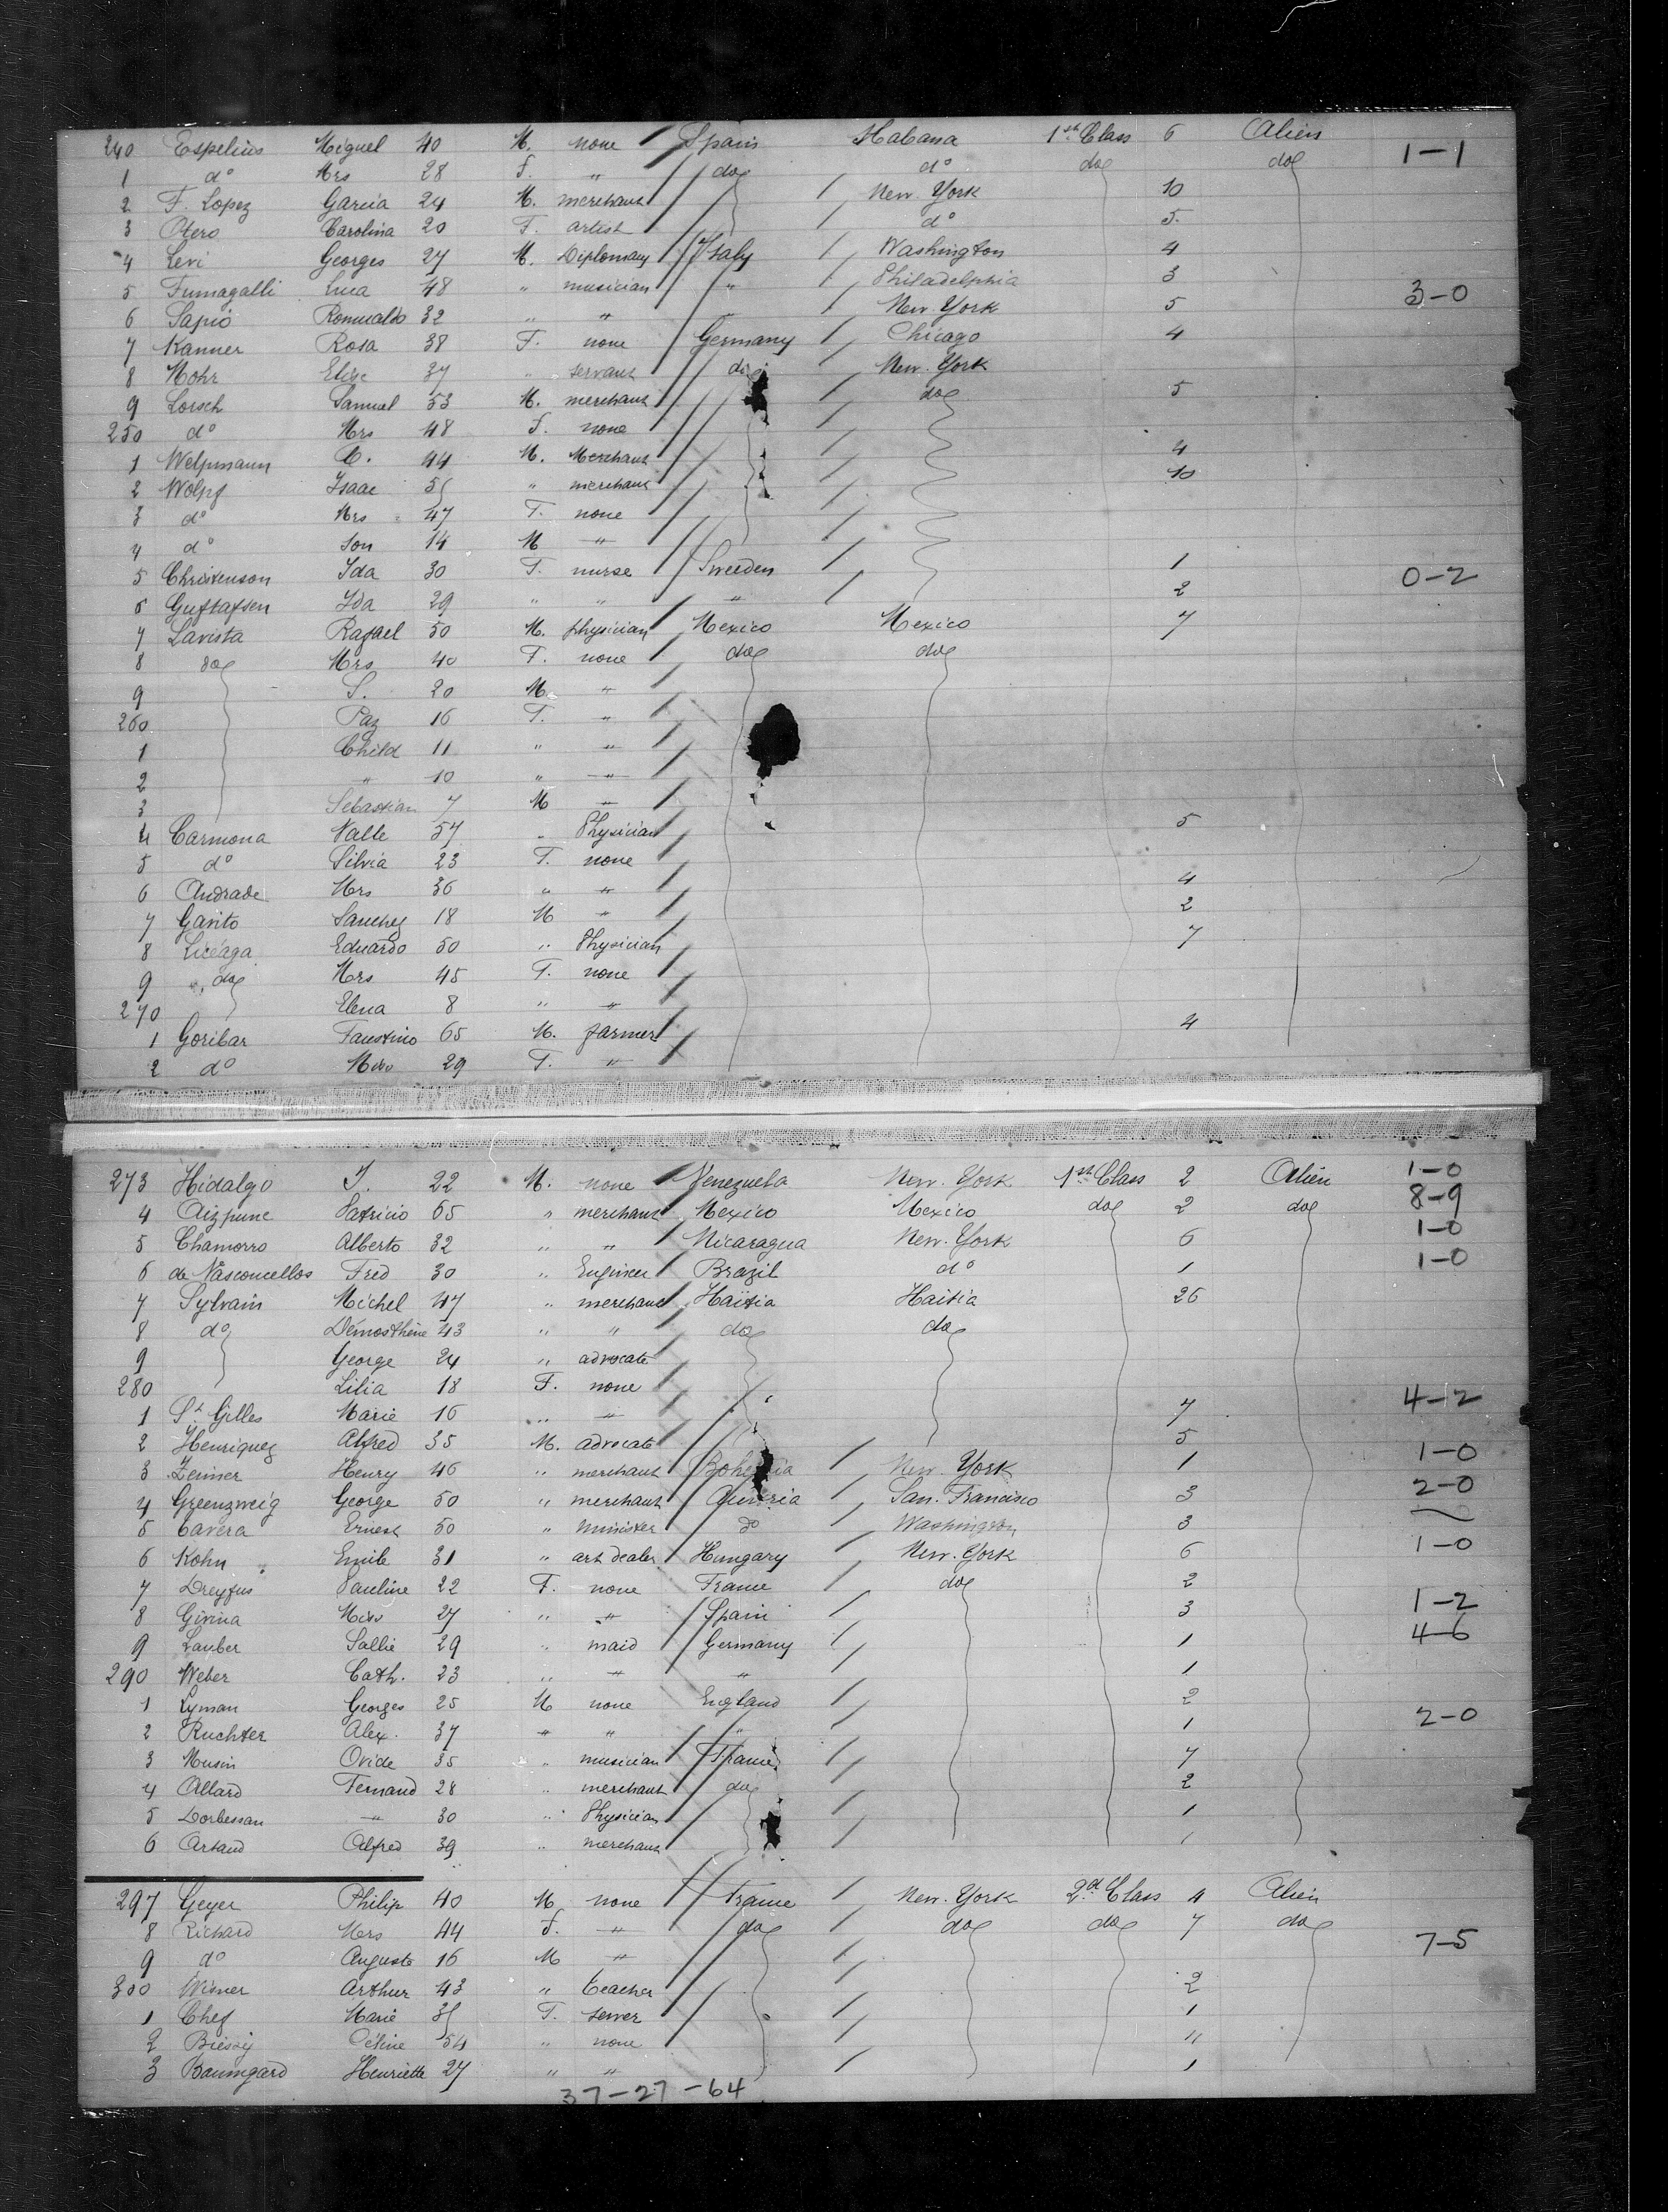 240 Espelius Miguel 40 M. none Spain Habana 1st Class 6 Alien
1 do Mrs 28 F. " do do do do 1-1
2 F. Lopez Garcia 24 M. merchant New York 10
3 Otero Carolina 20 F. artist do 5
4 Levi Georges 27 M. Diplomacy Italy Washington 4
5 Fumagalli Luca 48 " musician " Philadelphia 3 3-0
6 Sapio Romualdo 32 " " New York 5
7 Kanner Rosa 38 F. none Germany Chicago 4
8 Mohr Elise 37 " servant do New York
9 Lorsch Samuel 53 M. merchant do 5
250 do Mrs 48 F. none
1 Welpmann C. 44 M. Merchant 4
2 Wolff Isaac " merchant 10
3 do Mrs 47 F. none
4 do Son 14 M "
5 Christenson Ida 30 F. nurse Sweeden 1 0-2
6 Gustafsen Ida 29 " " " 2
7 Lavista Rafael 50 M. physician Mexico Mexico 7
8 do Mrs 40 F. none do do
9 S. 20 M. "
260 Paz 16 F. "
1 Child 11 " "
2 " 10 " "
3 Sebastian 7 M "
4 Carmona Valle 57 " Physician 5
5 do Silvia 23 F. none
6 Andrade Mrs 36 " " 4
7 Garito Sanchez 18 M " 2
8 Liceaga Eduardo 50 " Physician 7
9 do Mrs 45 F. none
270 Elena 8 " "
1 Goribar Faustino 65 M. farmer 4
2 do Miss 29 F. "
273 Hidalgo 22 M. none Venezuela New York 1st Class 2 Alien 1-0
4 Aizpune Patricio 65 " merchant Mexico Mexico do 2 do 8-9
5 Chamorro Alberto 32 " " Nicaragua New York 6 1-0
6 de Vasconcellos Fred 30 " Engineer Brazil do 1 1-0
7 Sylvain Michel 47 " merchant Haïtia Haitia 26
8 do Démosthène 43 " " do do
9 George 24 " advocate
280 Lilia 18 F. none
1 St Gilles Marie 16 " " 7 4-2
2 Henriquez Alfred 35 M. advocate 5
3 Zeimer Henry 46 " merchant Bohemia New York 1 1-0
4 Greenzweig George 50 " merchant Austria San Francisco 3 2-0
5 Cavera Ernest 50 " minister do Washington 3
6 Kohn Emile 31 " art dealer Hungary New York 6 1-0
7 Dreyfus Pauline 22 F. none France do 2
8 Givina Miss 27 " " Spain 3 1-2
9 Lauber Sallie 29 " maid Germany 1 4-6
290 Weber Cath. 23 " " " 1
1 Lyman Georges 25 M none England 2
2 Ruchter Alex. 37 " " " 1 2-0
3 Musin Ovide 35 " musician France 7
4 Allard Fernand 28 " merchant do 2
5 Dorbessan " 30 " Physician 1
6 Artaud Alfred 39 " merchant
297 Geyer Philip 40 M none France New York 2d Class 4 Alien
8 Richard Mrs 44 F. " do do do 7 do
9 do Auguste 16 M " 7-5
300 Wisner Arthur 43 " teacher 2
1 Chef Marie F. sewer 1
2 Céline 54 " none "
3 Baumgard Henriette 27 " " 1
37-27-64